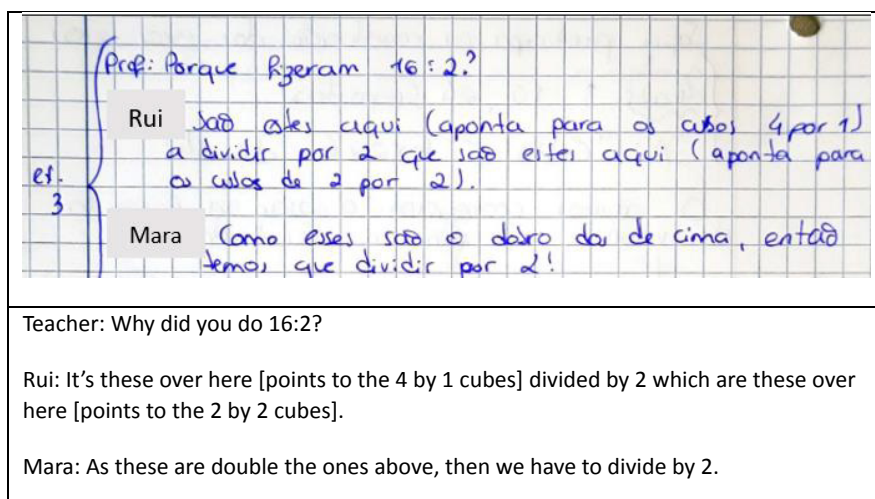 Prof: Porque fizeram 16:2?
Rui São estes aqui (aponta para os cubos 4 por 1)
a dividir por 2 que são estes aqui (aponta para
os cubos de 2 por 2).
ex.
3
Mara Como esses são o dobro dos de cima, então
temos que dividir por 2!
Teacher: Why did you do 16:2?
Rui: It’s these over here [points to the 4 by 1 cubes] divided by 2 which are these over
here [points to the 2 by 2 cubes].
Mara: As these are double the ones above, then we have to divide by 2.